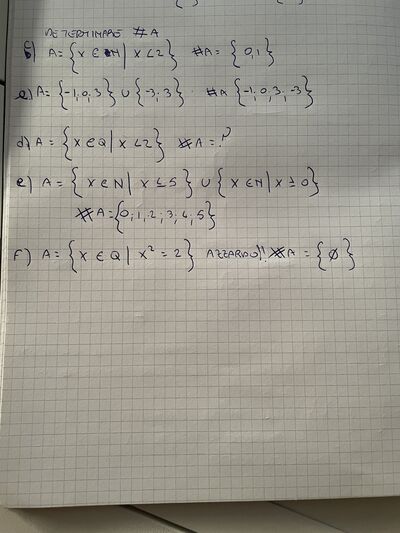 DETERMINARE #A
b) A = {x ∈ N | x < 2} #A = {0, 1}
c) A = {-1, 0, 3} ∪ {-3; 3} #A {-1, 0, 3, -3}
d) A = {x ∈ Q | x < 2} #A = ?
e) A = {x ∈ N | x ≤ 5} ∪ {x ∈ N | x ≥ 0}
#A = {0; 1; 2; 3; 4; 5}
F) A = {x ∈ Q | x² = 2} AZZARDO!! #A = {∅}